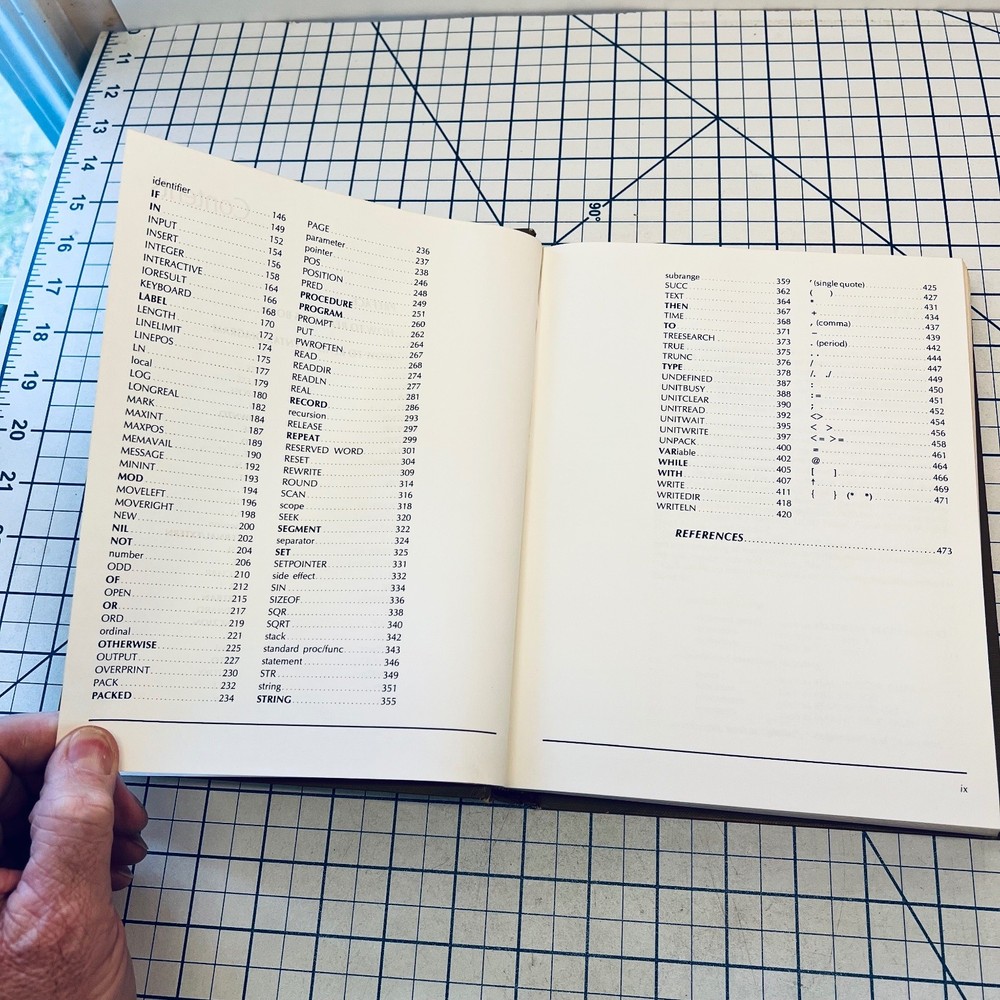 identifier 146
IF 149
IN 152
INPUT 154
INSERT 156
INTEGER 158
INTERACTIVE 164
IORESULT 166
KEYBOARD 168
LABEL 170
LENGTH 172
LINELIMIT 174
LINEPOS 175
LN 177
local 179
LOG 180
LONGREAL 182
MARK 184
MAXINT 187
MAXPOS 189
MEMAVAIL 190
MESSAGE 192
MININT 193
MOD 194
MOVELEFT 196
MOVERIGHT 198
NEW 200
NIL 202
NOT 204
number 206
ODD 210
OF 212
OPEN 215
OR 217
ORD 219
ordinal 221
OTHERWISE 225
OUTPUT 227
OVERPRINT 230
PACK 232
PACKED 234
PAGE 236
parameter 237
pointer 238
POS 246
POSITION 248
PRED 249
PROCEDURE 251
PROGRAM 260
PROMPT 262
PUT 264
PWROFTEN 267
READ 268
READDIR 274
READLN 277
REAL 281
RECORD 286
recursion 293
RELEASE 297
REPEAT 299
RESERVED WORD 301
RESET 304
REWRITE 309
ROUND 314
SCAN 316
scope 318
SEEK 320
SEGMENT 322
separator 324
SET 325
SETPOINTER 331
side effect 332
SIN 334
SIZEOF 336
SQR 338
SQRT 340
stack 342
standard proc/func 343
statement 346
STR 349
string 351
STRING 355
subrange 359
SUCC 362
TEXT 364
THEN 367
TIME 368
TO 371
TREESEARCH 373
TRUE 375
TRUNC 376
TYPE 378
UNDEFINED 387
UNITBUSY 388
UNITCLEAR 390
UNITREAD 392
UNITWAIT 395
UNITWRITE 397
UNPACK 400
VARiable 402
WHILE 405
WITH 407
WRITE 411
WRITEDIR 418
WRITELN 420
' (single quote) 425
( ) 427
* 431
+ 434
, (comma) 437
− 439
. (period) 442
.. 444
/ 447
449
: 450
:= 451
; 452
<> 454
< > 456
<= >= 458
= 461
@ 464
[ ] 466
↑ 469
{ } (* *) 471
REFERENCES 473
ix
11
12
13
14
15
16
17
18
19
20
21
90°